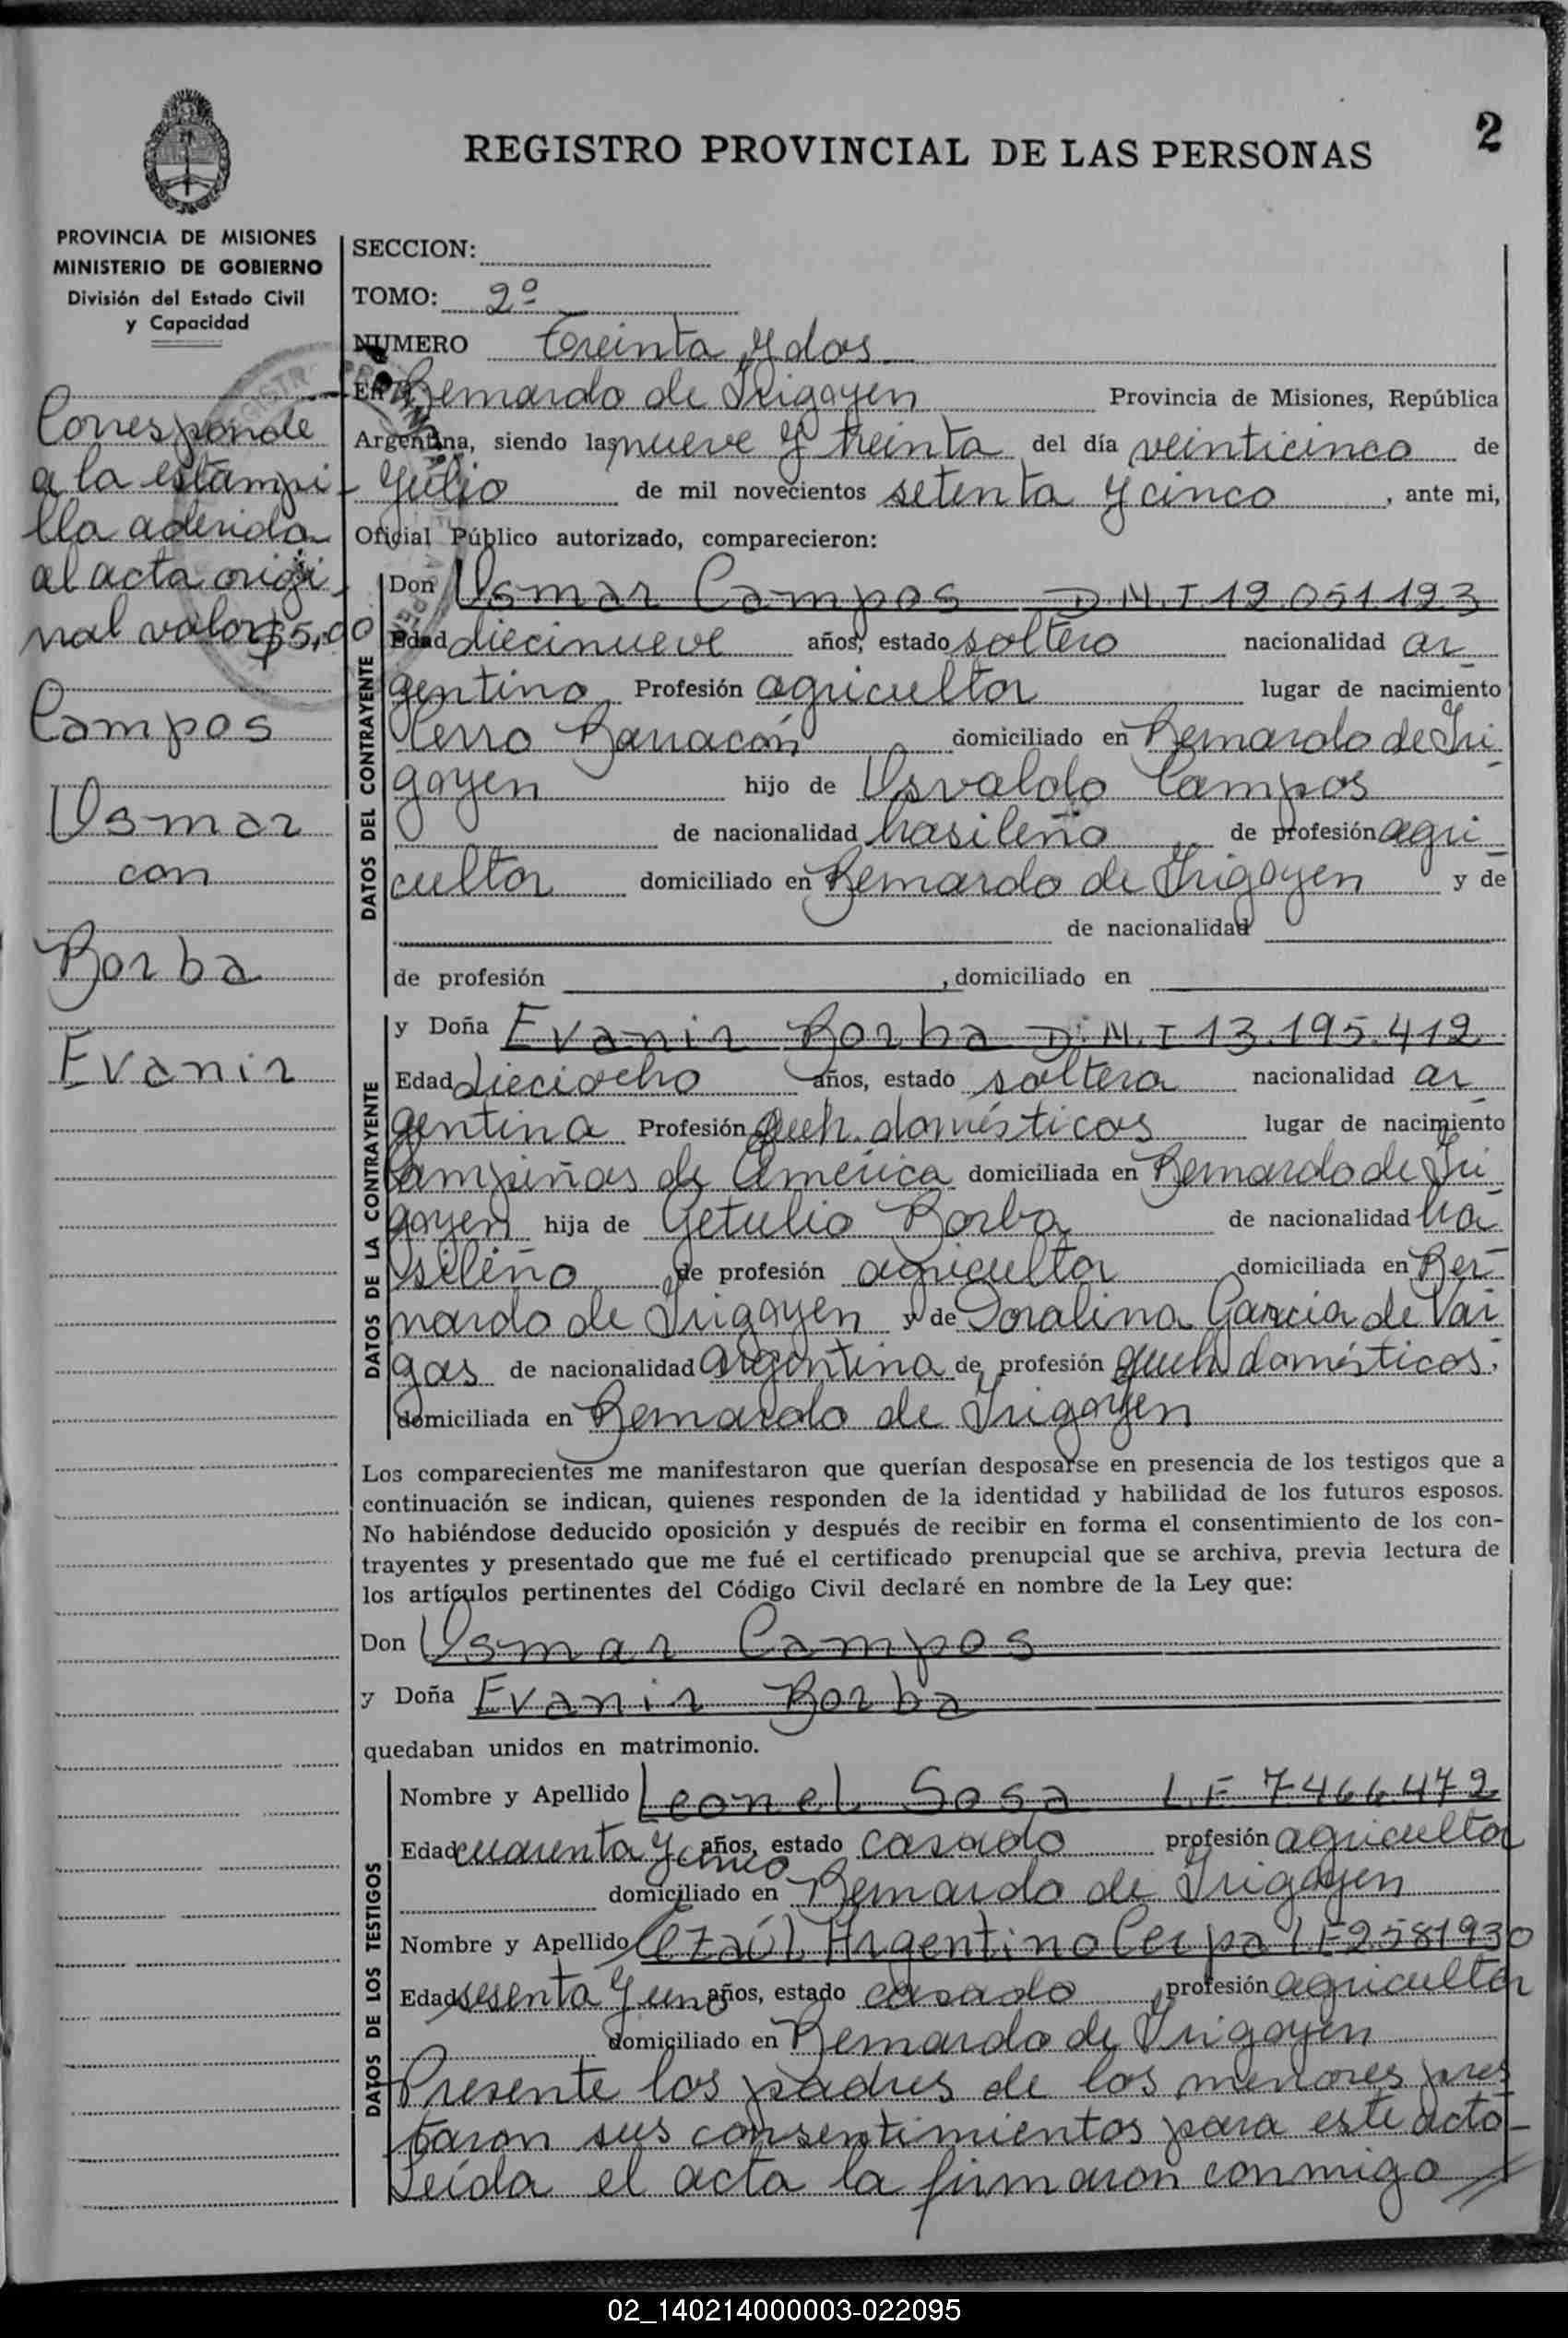 2
REGISTRO PROVINCIAL DE LAS PERSONAS
PROVINCIA DE MISIONES
MINISTERIO DE GOBIERNO
División del Estado Civil
y Capacidad
Corresponde
a la estampi-
lla aderida
al acta origi-
nal valor $5,00
Campos
Usmar
con
Borba
Evanir
SECCION:
TOMO: 2º
NUMERO Treinta y dos
En Bernardo de Irigoyen Provincia de Misiones, República
Argentina, siendo las nueve y treinta del día veinticinco de
Julio de mil novecientos setenta y cinco, ante mi,
Oficial Público autorizado, comparecieron:
DATOS DEL CONTRAYENTE
Don Usmar Campos D.N.I 12.051.123
Edad diecinueve años, estado soltero nacionalidad ar
gentino Profesión agricultor lugar de nacimiento
Cerro Barracón domiciliado en Bernardo de Iri
goyen hijo de Osvaldo Campos
de nacionalidad brasileño de profesión agri
cultor domiciliado en Bernardo de Irigoyen y de
de nacionalidad
de profesión , domiciliado en
DATOS DE LA CONTRAYENTE
y Doña Evanir Borba D.N.I 13.195.412
Edad dieciocho años, estado soltera nacionalidad ar
gentina Profesión queh. domésticos lugar de nacimiento
Campiñas de América domiciliada en Bernardo de Iri
goyen hija de Getulio Borba de nacionalidad bra
sileño de profesión agricultor domiciliada en Ber
nardo de Irigoyen y de Doralina García de Var
gas de nacionalidad argentina de profesión queh domésticos,
domiciliada en Bernardo de Irigoyen
Los comparecientes me manifestaron que querían desposarse en presencia de los testigos que a
continuación se indican, quienes responden de la identidad y habilidad de los futuros esposos.
No habiéndose deducido oposición y después de recibir en forma el consentimiento de los con-
trayentes y presentado que me fué el certificado prenupcial que se archiva, previa lectura de
los artículos pertinentes del Código Civil declaré en nombre de la Ley que:
Don Usmar Campos
y Doña Evanir Borba
quedaban unidos en matrimonio.
DATOS DE LOS TESTIGOS
Nombre y Apellido Leonel Sosa L.E 7466.472
Edad cuarenta y cinco años, estado casado profesión agricultor
domiciliado en Bernardo de Irigoyen
Nombre y Apellido Argentino Cerpa L E 2581930
Edad sesenta y uno años, estado casado profesión agricultor
domiciliado en Bernardo de Irigoyen
Presente los padres de los menores pres
taron sus consentimientos para este acto-
Leída el acta la firmaron conmigo
02_140214000003-022095